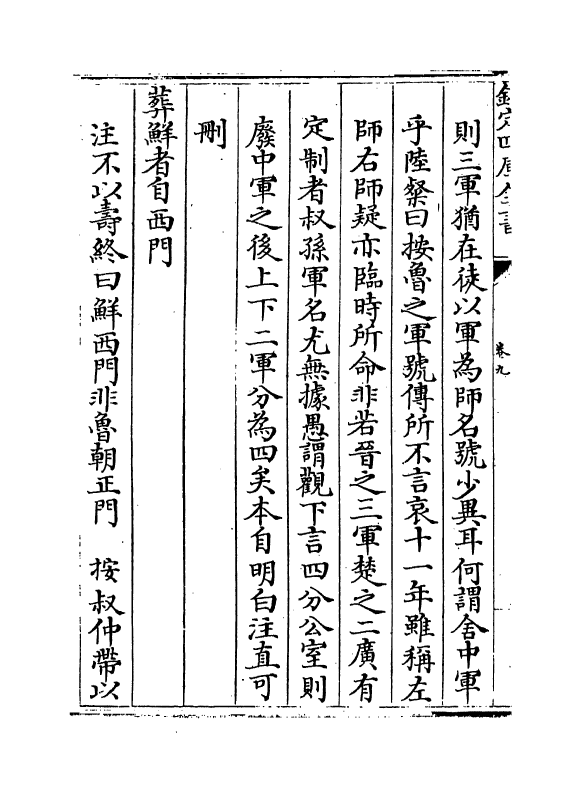 欽定四庫全書
卷九
則三軍猶在徒以軍為師名號少異耳何謂舍中軍
乎陸粲曰按魯之軍號傳所不言哀十一年雖稱左
師右師疑亦臨時所命非若晉之三軍楚之二廣有
定制者叔孫軍名尤無據愚謂觀下言四分公室則
廢中軍之後上下二軍分為四矣本自明白注直可
刪
葬鮮者自西門
注不以壽終曰鮮西門非魯朝正門　按叔仲帶以